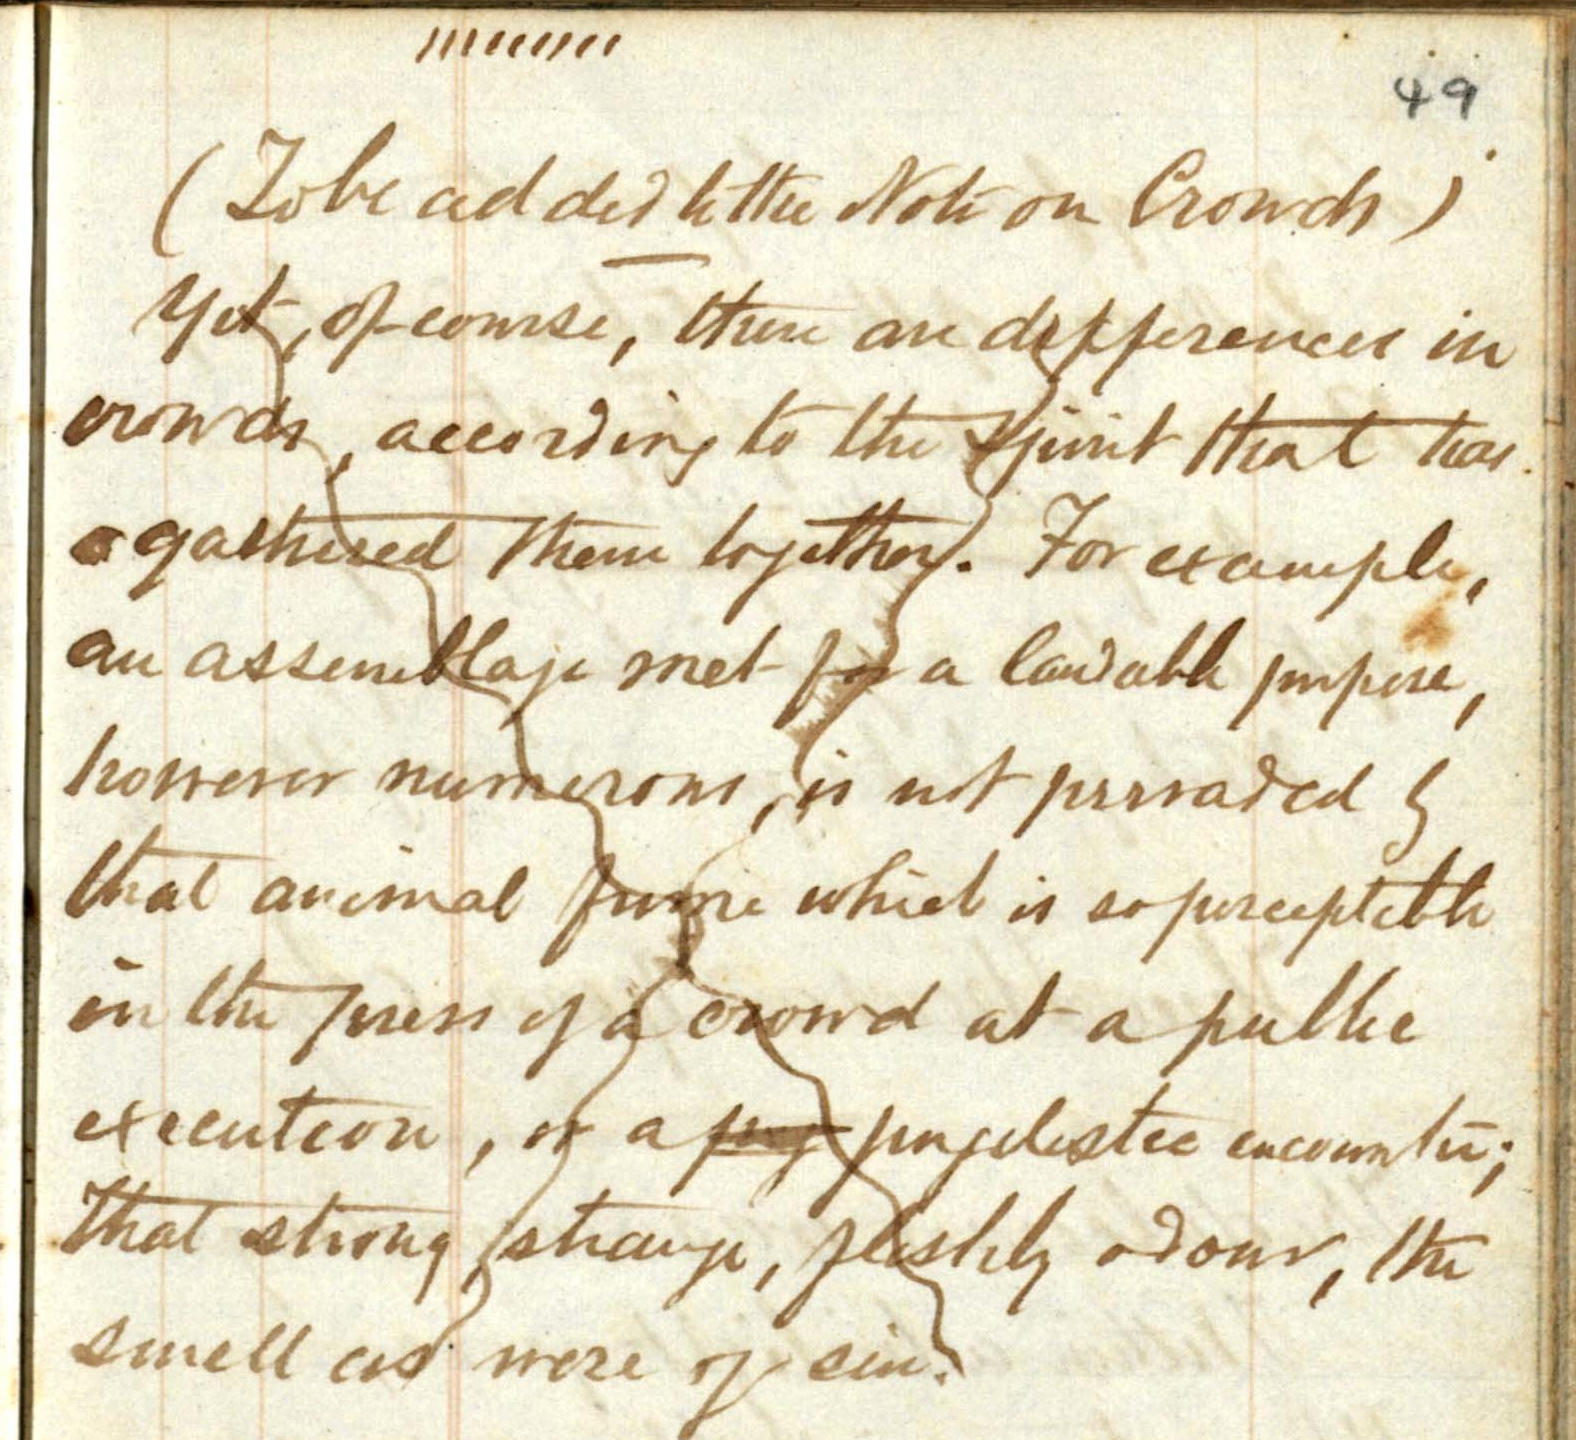 49
(To be added to the Note on Crowds)
Yet, of course, there are differences in
crowds, according to the spirit that has
gathered them together. For example,
an assemblage met for a laudable purpose,
however numerous, is not pervaded by
that animal fume which is so perceptible
in the press of a crowd at a public
execution, or a pug pugilistic encounter;
that strong, strange, fleshly odour, the
smell as were of sin.